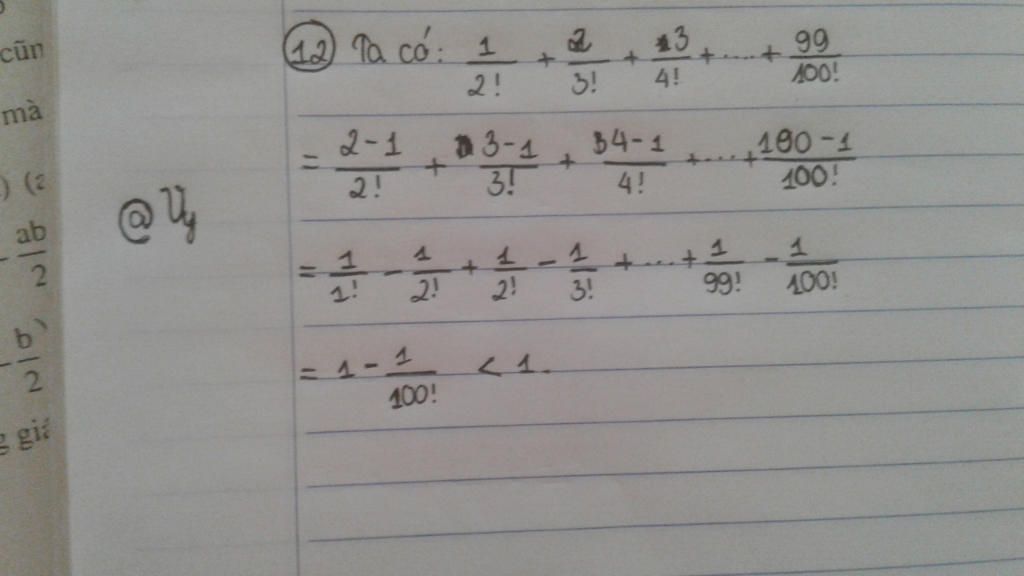 cũn
mà
) (a
- ab/2
- b/2
g giá
@ Uy
12 Ta có: 1/2! + 2/3! + 3/4! + .... + 99/100!
= 2-1/2! + 3-1/3! + 4-1/4! + .... + 100-1/100!
= 1/1! - 1/2! + 1/2! - 1/3! + .... + 1/99! - 1/100!
= 1 - 1/100! < 1.